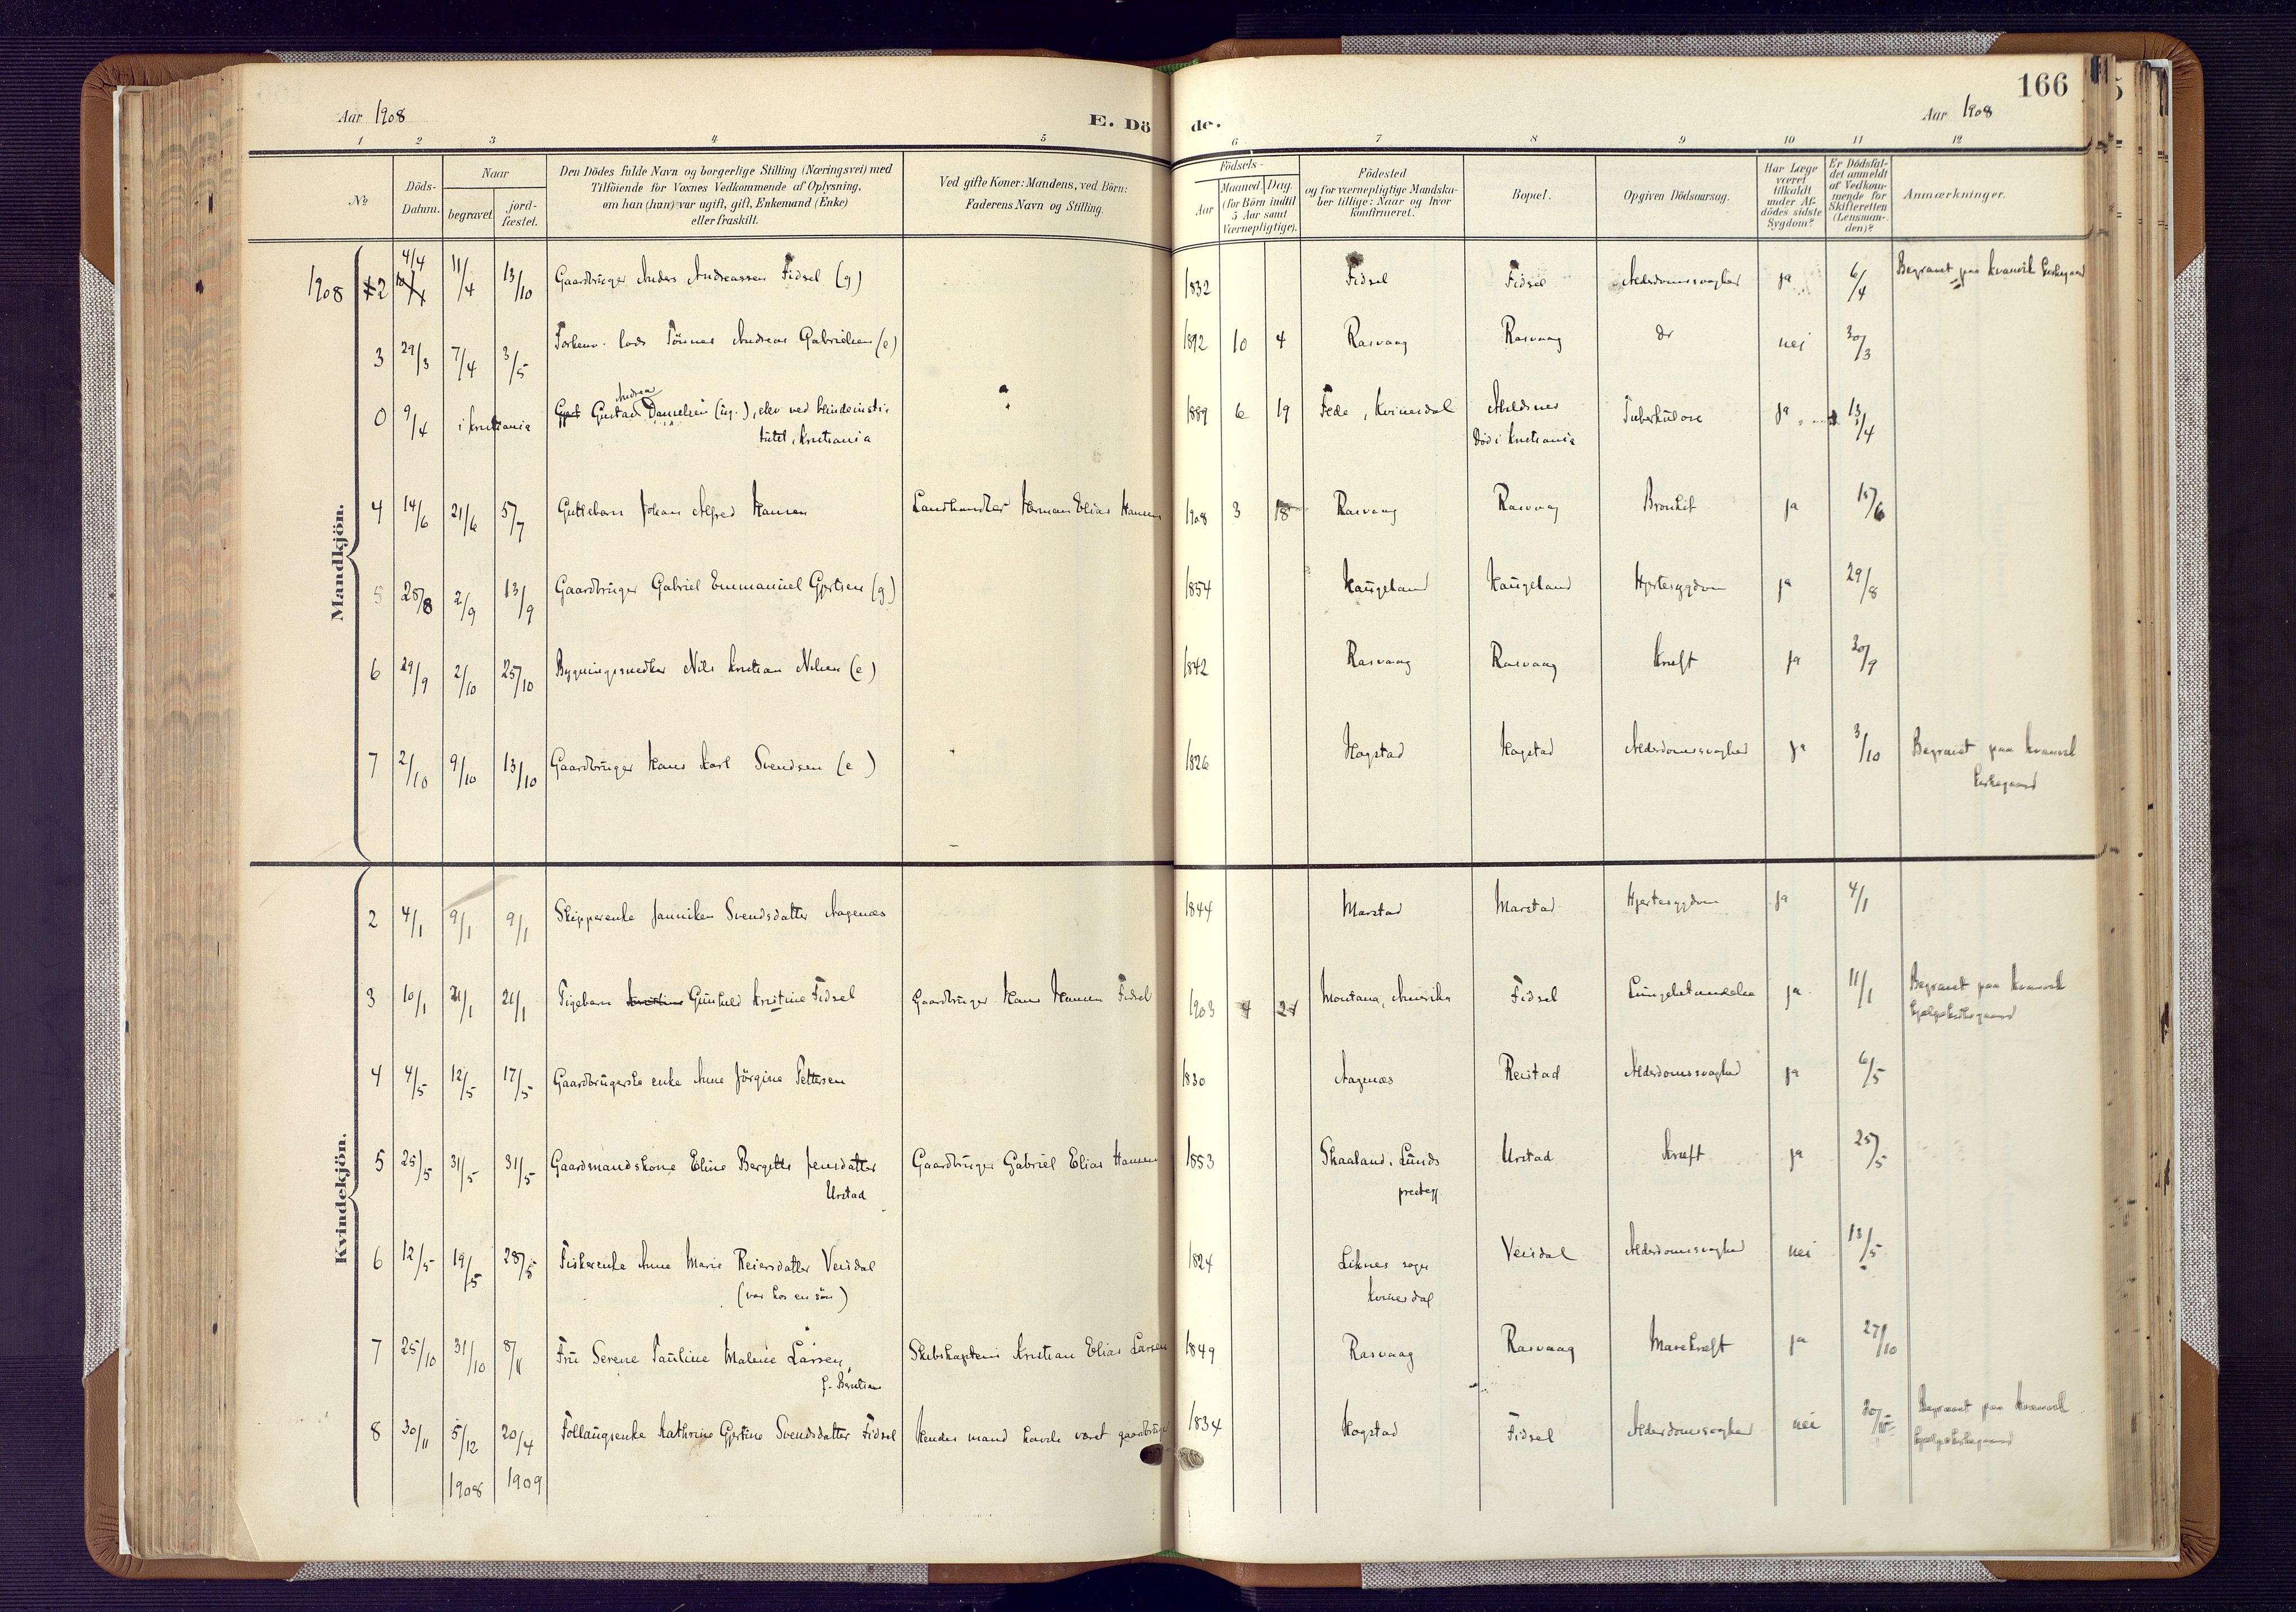 166
Aar 1908
E. Döde.
Aar 1908
1 2 3 4 5 6 7 8 9 10 11 12
No
Döds-Datum.
Naar
begravet.
jordfæstet.
Den Dödes fulde Navn og borgerlige Stilling (Næringsvei) med
Tilföiende for Voxnes Vedkommende af Oplysning,
om han (hun) var ugift, gift, Enkemand (Enke)
eller fraskilt.
Ved gifte Koner: Mandens, ved Börn:
Faderens Navn og Stilling.
Födsels-
Aar
Maaned. Dag.
(for Börn indtil
5 Aar samt
Værnepligtige).
Födested
og for værnepligtige Mandsku-
ber tillige: Naar og hvor
konfirmeret.
Bopæl.
Opgiven Dödsaarsag.
Har Læge
været
tilkaldt
under Af-
dödes sidste
Sygdom?
Er Dödsfal-
det anmeldt
af Vedkom-
mende for
Skifteretten
(Lensman-
den)?
Anmærkninger.
Mandkjön.
1908 2 4/4 11/4 13/10 Gaardbruger Anders Andreassen Fidsel (g) 1832 Fidsel Fidsel Alderdomssvaghed ja 6/4 Begravet paa Kvanvik kirkegaard
3 29/3 7/4 3/5 Forhenv. lods Tönnes Andreas Gabrielsen (e) 1892 10 4 Rasvaag Rasvaag do nei 30/3
0 9/4 i Kristiania Gustav Andrea Danielsen (ug.), elev ved blindeinsti- 1889 6 19 Fede, Kvinesdal Abildsnes Tuberkulose ja 13/4
tutet i Kristiania Död i Kristiania
4 14/6 21/6 5/7 Guttebarn Johan Alfred Hansen Landhandler Herman Elias Hansen 1908 3 18 Rasvaag Rasvaag Bronkit ja 15/6
5 28/8 2/9 13/9 Gaardbruger Gabriel Emmanuel Gjertsen (g) 1854 Haugeland Haugeland Hjertesygdom ja 29/8
6 29/9 2/10 25/10 Bygningssnedker Nils Kristian Nilsen (e) 1842 Rasvaag Rasvaag Kræft ja 30/9
7 2/10 9/10 13/10 Gaardbruger Hans Karl Svendsen (e) 1826 Hogstad Hogstad Alderdomssvaghed ja 3/10 Begravet paa Kvanvik
kirkegaard
Kvindekjön.
2 4/1 9/1 9/1 Skipperenke Janniken Svendsdatter Aagenæs 1844 Marstad Marstad Hjertesygdom ja 4/1
3 10/1 21/1 21/1 Pigebarn Gunhild Kristine Fidsel Gaardbruger Hans Hansen Fidsel 1903 4 21 Montana, Amerika Fidsel Lungebetændelse ja 11/1 Begravet paa Kvanvik
hjælpekirkegaard
4 4/5 12/5 17/5 Gaardbrugerske enke Anne Jörgine Pettersen 1830 Aagenæs Reistad Alderdomssvaghed ja 6/5
5 25/5 31/5 31/5 Gaardmandskone Eline Bergitte Jensdatter Gaardbruger Gabriel Elias Hansen 1853 Skaaland, Lunds Urstad Kræft ja 25/5
Urstad præstegj.
6 12/5 19/5 28/5 Fiskerenke Anne Marie Reiersdatter Veisdal 1824 Liknes sogn Veisdal Alderdomssvaghed nei 13/5
(var hos en sön) Kvinesdal
7 25/10 31/10 8/11 Fru Serene Pauline Malene Larsen, Skibskaptein Kristian Elias Larsen 1849 Rasvaag Rasvaag Mavekræft ja 27/10
f. Berntsen
8 30/11 5/12 20/4 Follaugsenke Kathrine Gjertine Svendsdatter Fidsel Hendes mand havde været gaardbruger 1834 Hogstad Fidsel Alderdomssvaghed nei Begravet paa Kvanvik
hjælpekirkegaard
1908 1909